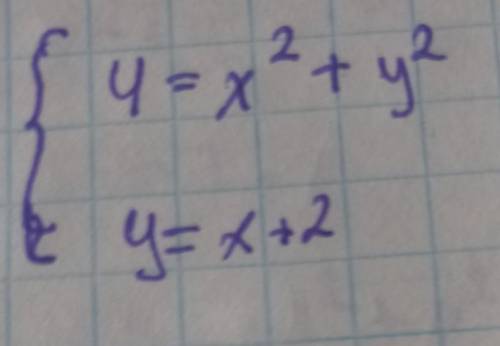 4 = x² + y²
y = x + 2